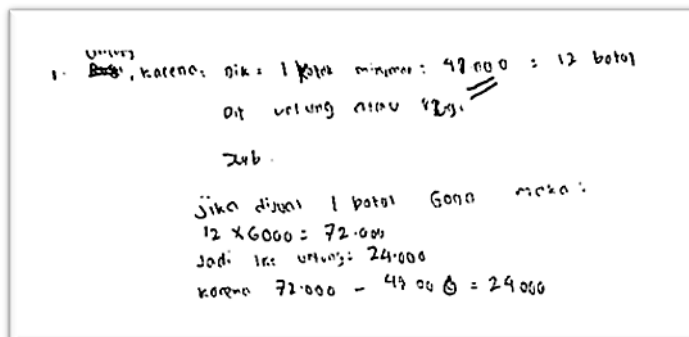 Untung
1. Rugi, karena: Dik: 1 kotak minuman: 48 000 : 12 botol
Dit untung atau rugi.
Jwb.
Jika dijual 1 botol 6000 maka:
12 x 6000 = 72.000
Jadi untung: 24.000
karena 72.000 - 48 000 = 24 000